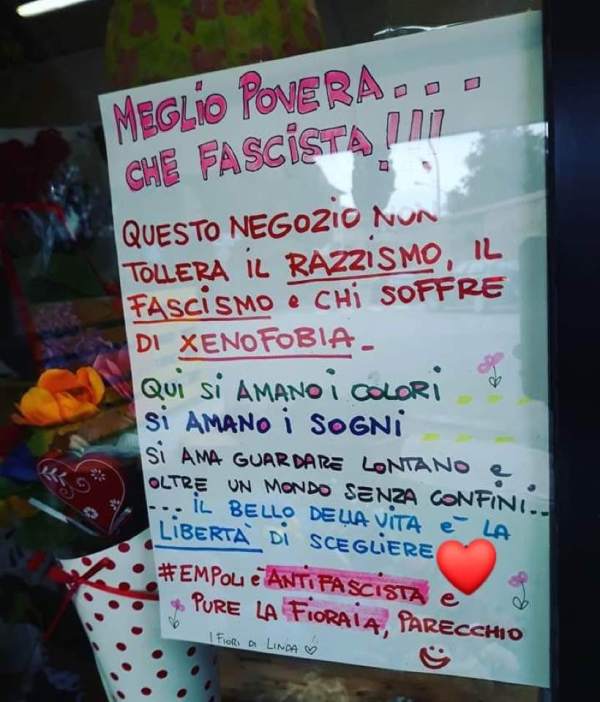 MEGLIO POVERA...
CHE FASCISTA!!!
QUESTO NEGOZIO NON
TOLLERA IL RAZZISMO, IL
FASCISMO e CHI SOFFRE
DI XENOFOBIA_
QUI SI AMANO I COLORI
SI AMANO I SOGNI
SI AMA GUARDARE LONTANO e
OLTRE UN MONDO SENZA CONFINI..
... IL BELLO DELLA VITA è LA
LIBERTÀ DI SCEGLIERE
#EMPOLI è ANTIFASCISTA e
PURE LA FIORAIA, PARECCHIO
I FIORI DI LINDA